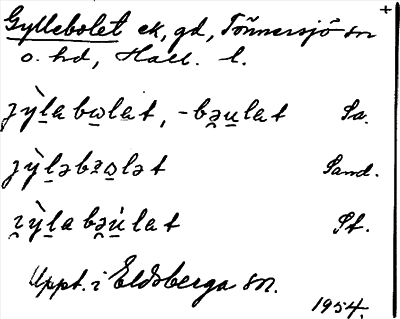 Gyllebolet ek, gd, Tönnersjö sn +
o. hd, Hall. l.
ȷỳl̠abω̠lat, -bə̠u̠lat Sa.
ȷỳl̠əbɷ̠lət Sand.
ı̠ỳl̠abə̠ù̠lat St.
Uppt. i Eldsberga sn.
1954.